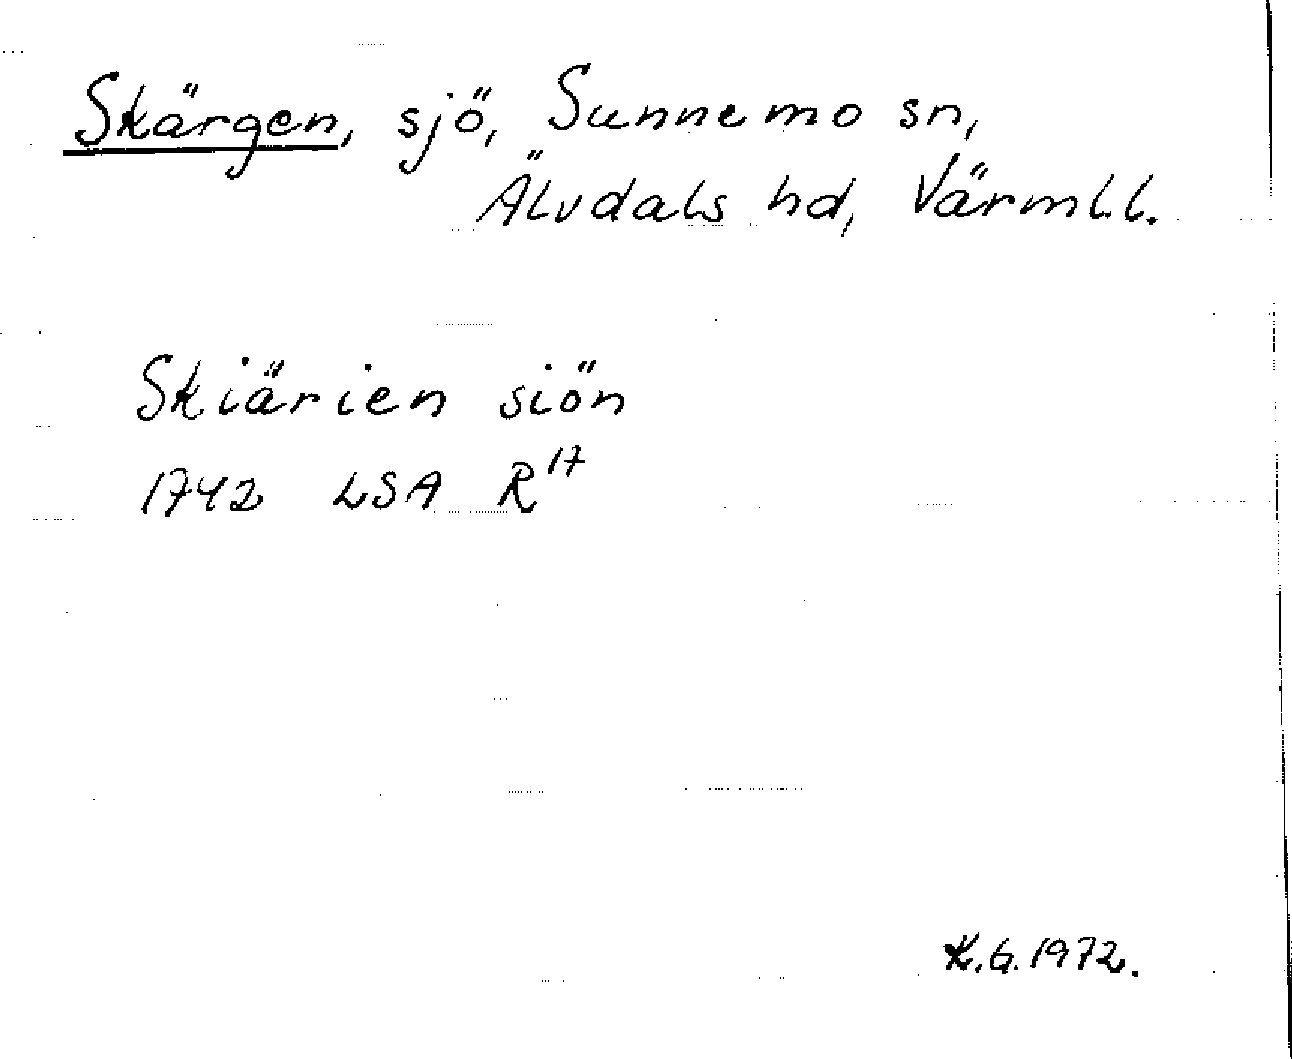 Skärgen, sjö, Sunnemo sn,
Älvdals hd, Värml l.
Skiärien siön
1742 LSA R17
K.G. 1972.